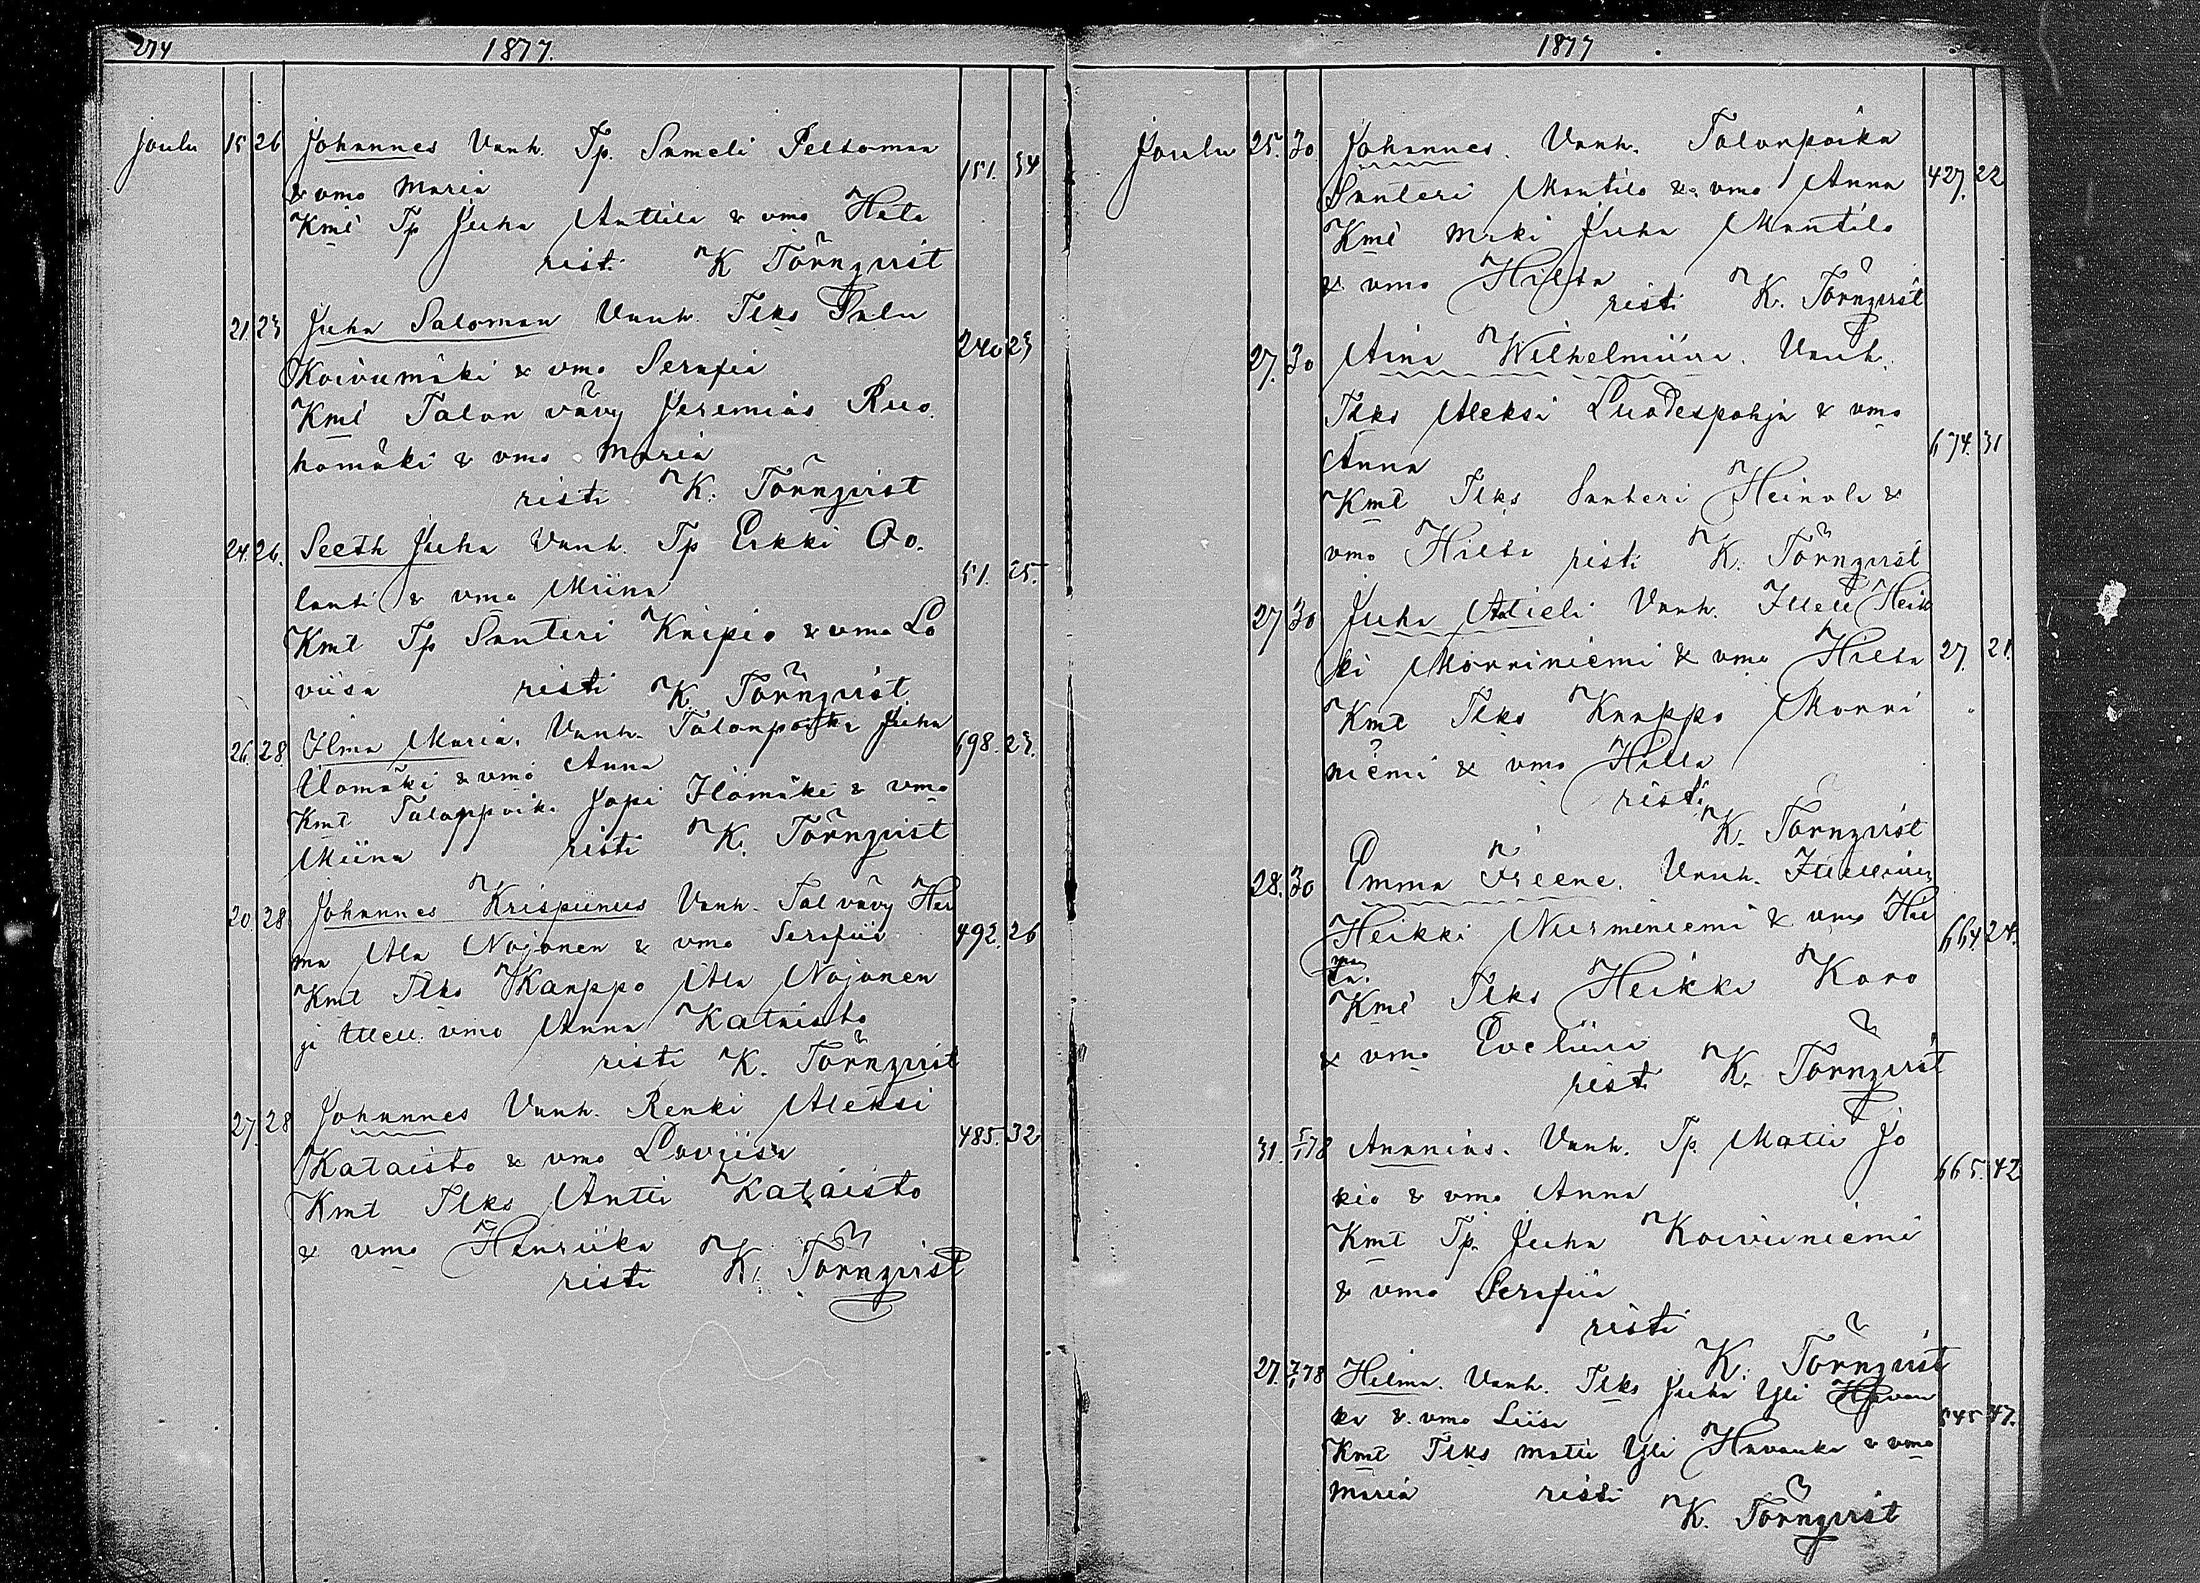 274 1877.
Joulu 15 26 Johannes Vanh. Tp. Sameli Peltoman 151. 34
& vmo Maria
Kmt Tp Juha Anttila & vmo
risti K Törnqvist
21. 23 Juha Saloman Vanh. Tlks
Koivumäki & vmo Serafia 240 23
Kmt Talon vävy Jeremias Ruo
homäki & vmo Maria
risti K. Törnqvist
24. 26. Seeth Juha Vanh. Tp Erkki Oo
lanti & vmo Miina 51. 25.
Kmt Tp Santeri Knipio & vmo Lo
viisa risti K Törnqvist
26. 28. Ilma Maria. Vanh. Talonpoika Juha 698. 23.
Ilomäki & vmo Anna
Kmt Talonpoik. Jopi Ilomäki & vmo
Miina risti K. Törnqvist
20 28 Johannes Krispiinus Vanh. Tal vävy Her
ma Ala Nojonen & vmo Serafiia 492. 26
Kmt Tlks Kaappo Ala Nojonen
ja vmo Anna Kataisto
risti K. Törnqvist
27. 28 Johannes Vanh. Renki Aleksi
Kataisto & vmo Loviisa 485. 32
Kmt Tlks Antti Kataisto
& vmo Henriika
risti K. Törnqvist
1877
Joulu 25. 30 Johannes. Vanh. Talonpoika
Santeri Mantila & vmo Anna 427. 22
Kmt Juha Mantila
& vmo Hilta
risti K. Törnqvist
27. 30 Aina Wilhelmiina. Vanh.
Tlks Aleksi Luodespohja & vmo
Anna 674. 31
Kmt Tlks Santeri Heinola &
vmo Hilta risti K. Törnqvist
27 30 Juha Atieli Vanh. Itell Heik
ki Mönniniemi & vmo Hilta 27. 21.
Kmt Tlks Kaappo Monni
niemi & vmo Hilta
risti
K. Törnqvist
28. 30 Emma Ireene. Vanh. Itellinen
Heikki Nurminiemi & vmo 664 24.
Kmt Tlks Heikki Koro
& vmo Eveliina
risti K. Törnqvist
31. 5/1 78 Ananias. Vanh. Tp. Matti Jo
kio & vmo Anna 665. 42
Kmt Tp. Juha Koivuniemi
& vmo Serafiia
risti
K. Törnqvist
27. 7/1 78 Hilma. Vanh. Tlks Juha Yli Havan
ka & vmo Liisa 545 47.
Kmt Tlks Matti Yli Havanka & vmo
Maria risti
K. Törnqvist